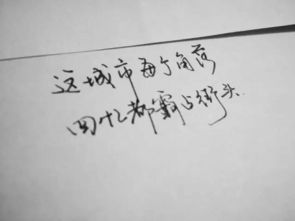 这城市每个角落
回忆都霸占街头